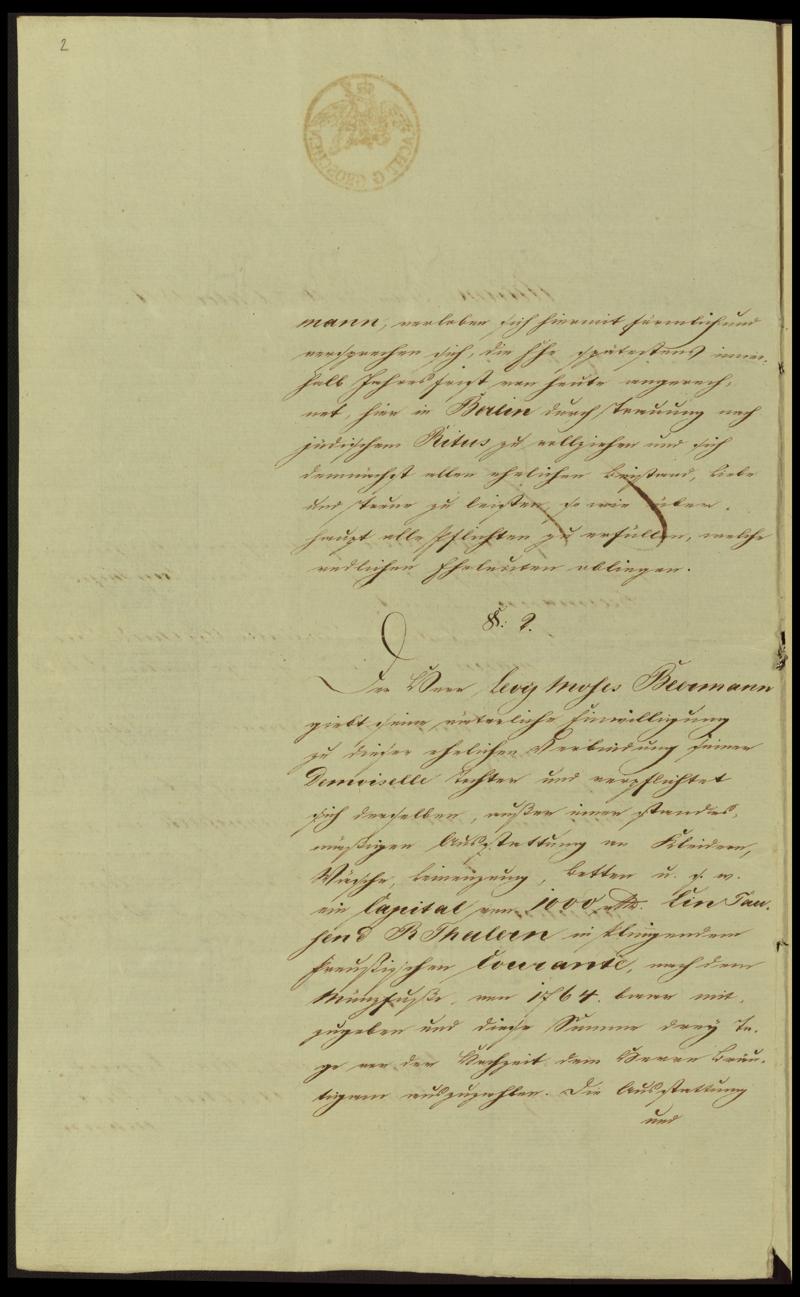 2
ACHT G. GROSCHEN
mann, verloben sich hiermit förmlich und
versprechen sich, die Ehe spätestens inner-
halb Jahresfrist von heute angerech-
net, hier in Berlin durch Trauung nach
jüdischem Ritus zu vollziehen und sich
demnächst allen ehelichen Beistand, Liebe
und Treue zu leisten, so wie über-
haupt alle Pflichten zu erfüllen, welche
redlichen Eheleuten obliegen.
§. 2.
Der Herr Levy Moses Beermann
giebt seine väterliche Einwilligung
zu dieser ehelichen Verbindung seiner
Demoiselle Tochter und verpflichtet
sich derselben, außer einer standes-
mäßigen Ausstattung an Kleidern,
Wäsche, Leinenzeug, Betten u. s. w.
ein Capital von 1000 rthlr. Ein Tau-
send R Thalern in klingendem
Preußischen Courante, nach dem
Münzfuße von 1764. baar mit-
zugeben und diese Summe drey Ta-
ge vor der Hochzeit dem Herrn Bräu-
tigam auszuzahlen. Die Ausstattung
und